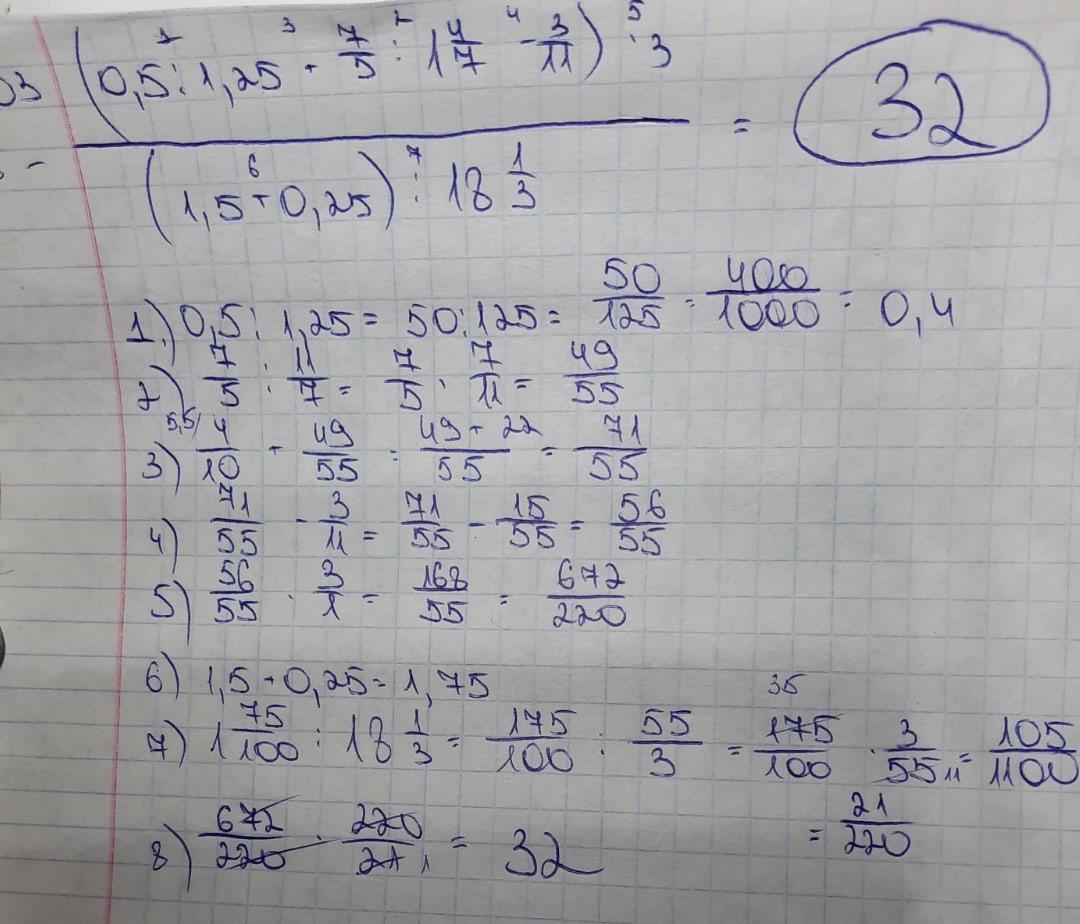 03 (0,5 : 1,25 + 7/5 : 1 4/7 - 3/11) · 3
1 3 2 4 5
= 32
(1,5 + 0,25) : 18 1/3
6 7
1) 0,5 : 1,25 = 50 : 125 = 50/125 = 400/1000 = 0,4
2) 7/5 : 11/7 = 7/5 · 7/11 = 49/55
5,5/
3) 4/10 + 49/55 = 49 + 22/55 = 71/55
4) 71/55 - 3/11 = 71/55 - 15/55 = 56/55
5) 56/55 · 3/1 = 168/55 = 672/220
6) 1,5 + 0,25 = 1,75
7) 1 75/100 : 18 1/3 = 175/100 : 55/3 = 35 175/100 · 3/55 11 = 105/1100
= 21/220
8) 672/220 · 220/21 1 = 32